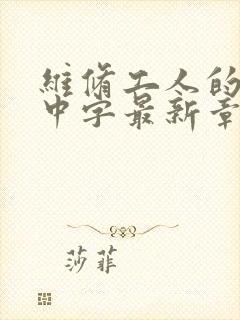 維修工人的
中字最新章
莎菲